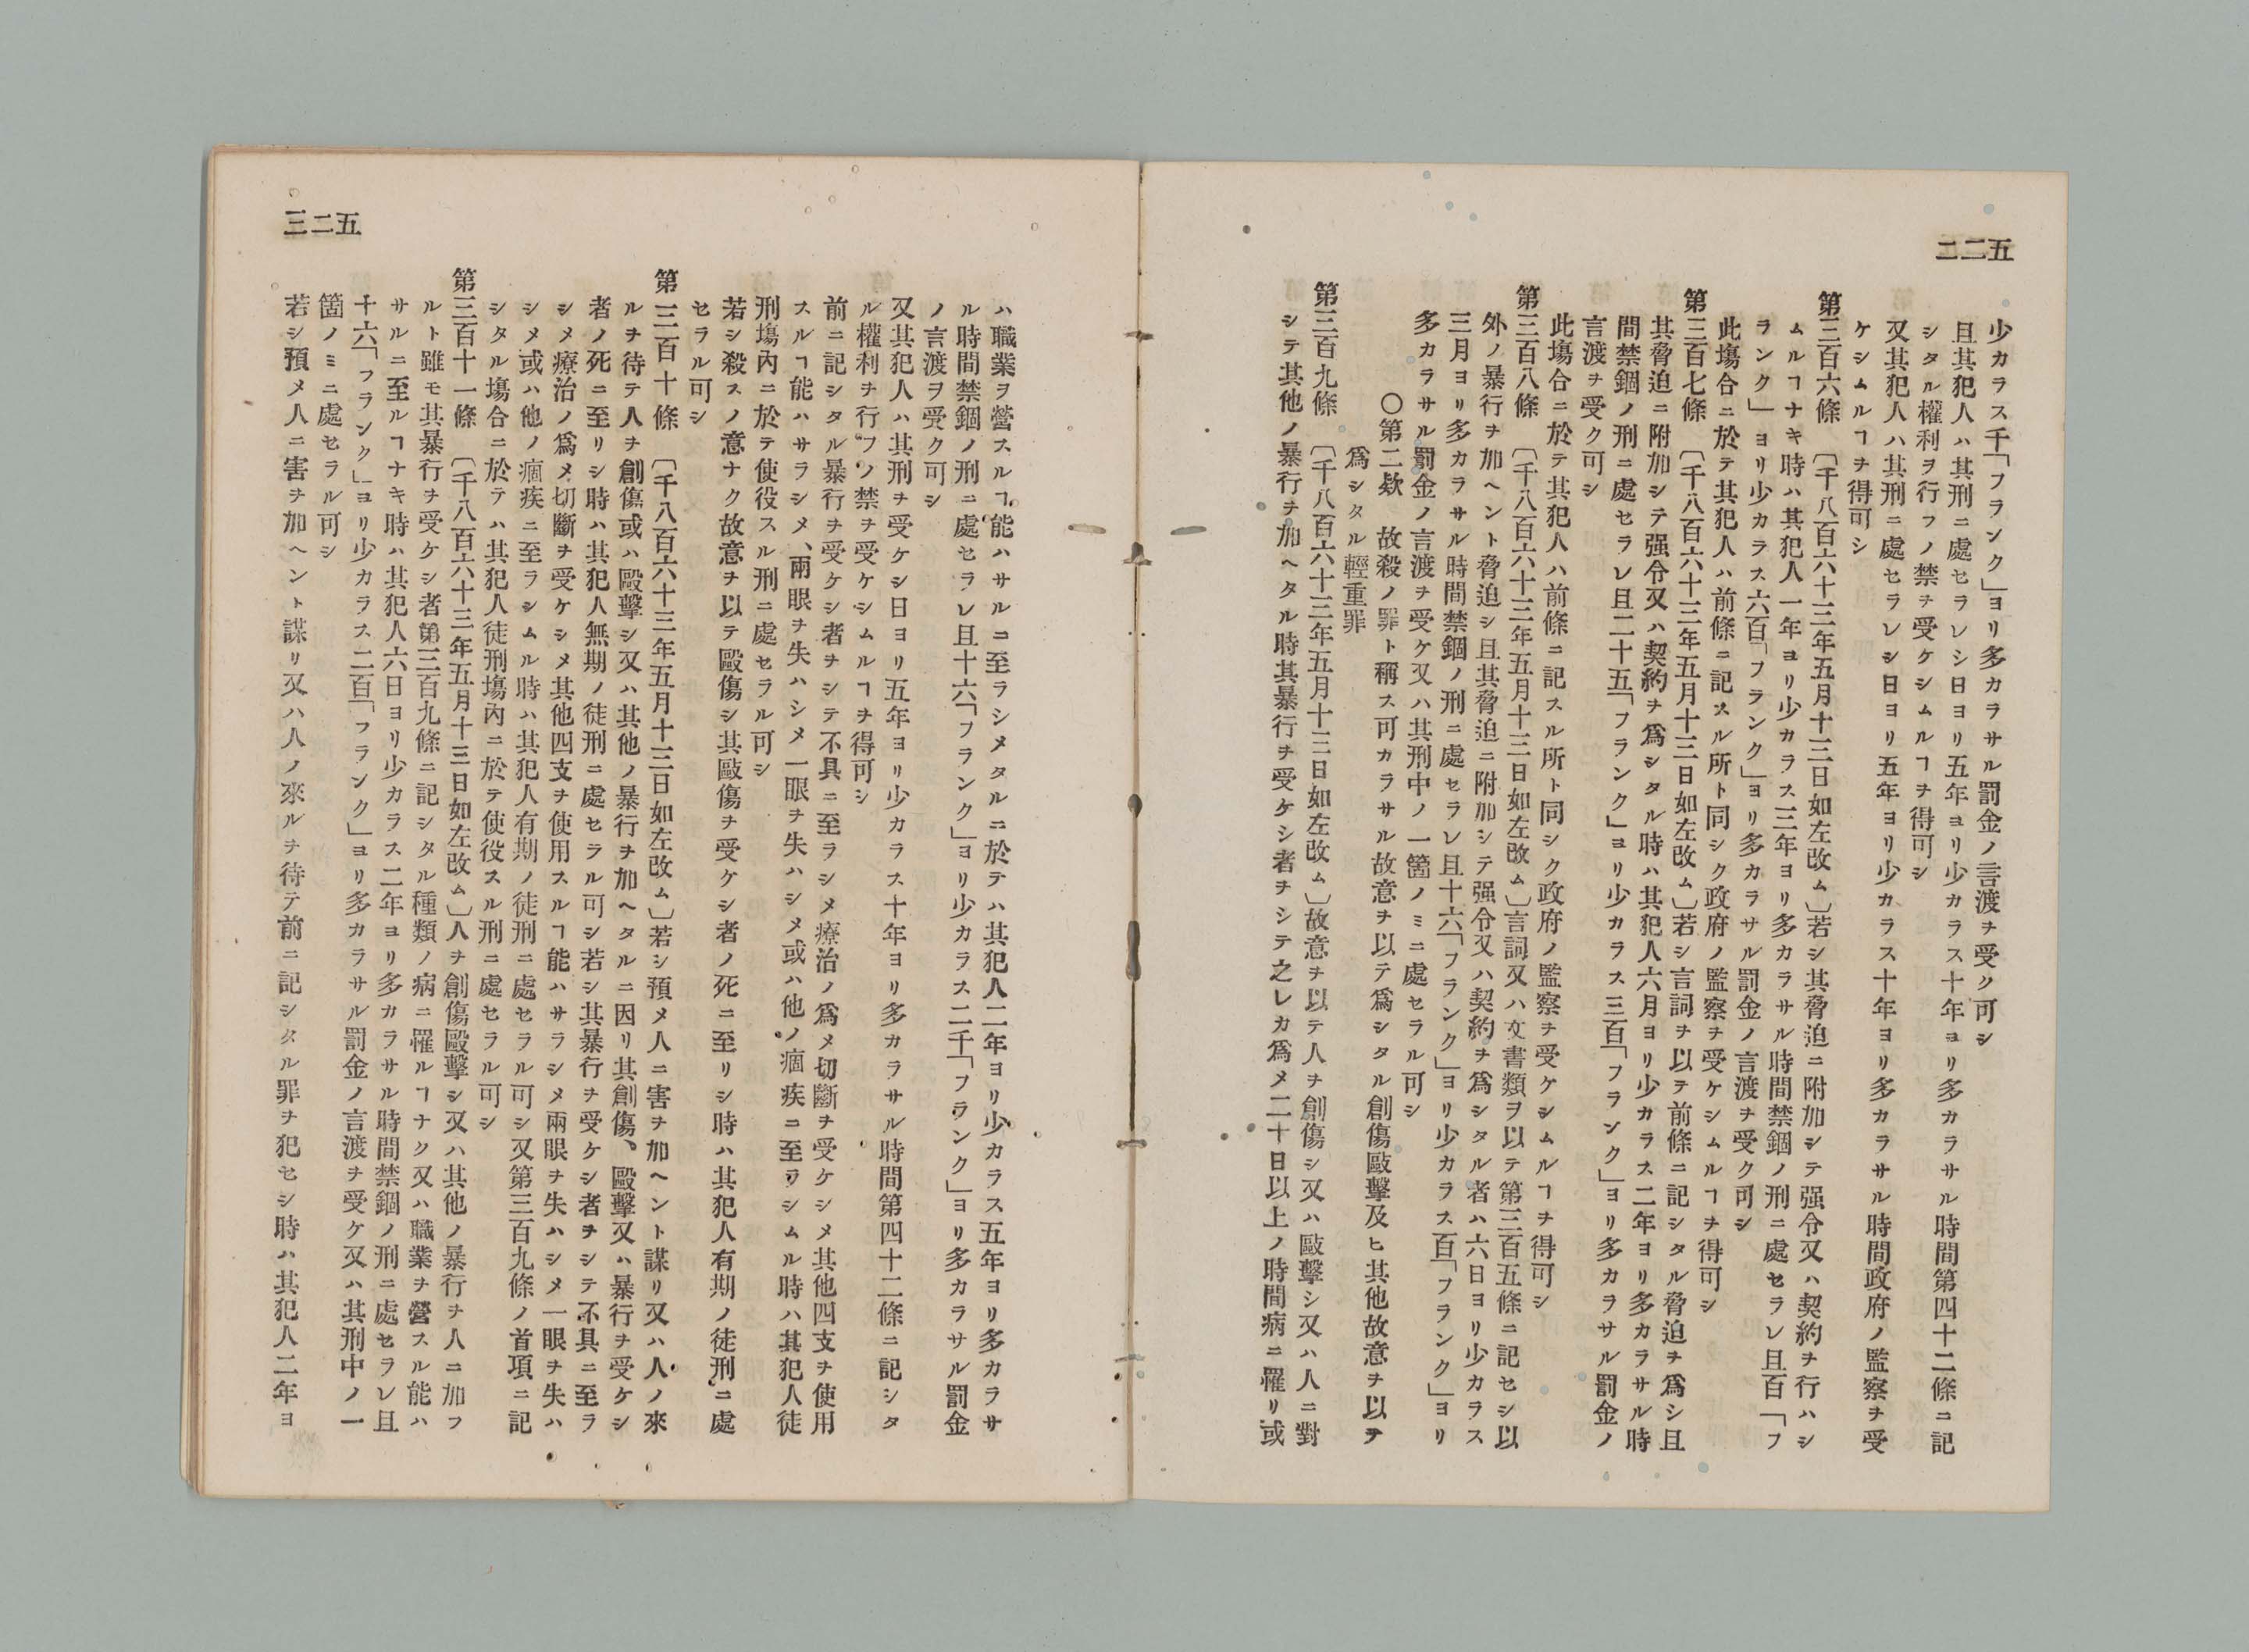 五二二
少カラス千「フランク」ヨリ多カラサル罰金ノ言渡ヲ受ク可シ
且其犯人ハ其刑ニ處セラレシ日ヨリ五年ヨリ少カラス十年ヨリ多カラサル時間第四十二條ニ記
シタル權利ヲ行フノ禁ヲ受ケシムルヿヲ得可シ
又其犯人ハ其刑ニ處セラレシ日ヨリ五年ヨリ少カラス十年ヨリ多カラサル時間政府ノ監察ヲ受
ケシムルヿヲ得可シ
第三百六條 〔千八百六十三年五月十三日如左改ム〕若シ其脅迫ニ附加シテ强令又ハ契約ヲ行ハシ
ムルヿナキ時ハ其犯人一年ヨリ少カラス三年ヨリ多カラサル時間禁錮ノ刑ニ處セラレ且百「フ
ランク」ヨリ少カラス六百「フランク」ヨリ多カラサル罰金ノ言渡ヲ受ク可シ
此塲合ニ於テ其犯人ハ前條ニ記スル所ト同シク政府ノ監察ヲ受ケシムルヿヲ得可シ
第三百七條 〔千八百六十三年五月十三日如左改ム〕若シ言詞ヲ以テ前條ニ記シタル脅迫ヲ爲シ且
其脅迫ニ附加シテ强令又ハ契約ヲ爲シタル時ハ其犯人六月ヨリ少カラス二年ヨリ多カラサル時
間禁錮ノ刑ニ處セラレ且二十五「フランク」ヨリ少カラス三百「フランク」ヨリ多カラサル罰金ノ
言渡ヲ受ク可シ
此塲合ニ於テ其犯人ハ前條ニ記スル所ト同シク政府ノ監察ヲ受ケシムルヿヲ得可シ
第三百八條 〔千八百六十三年五月十三日如左改ム〕言詞又ハ文書類ヲ以テ第三百五條ニ記セシ以
外ノ暴行ヲ加ヘント脅迫シ且其脅迫ニ附加シテ强令又ハ契約ヲ爲シタル者ハ六日ヨリ少カラス
三月ヨリ多カラサル時間禁錮ノ刑ニ處セラレ且十六「フランク」ヨリ少カラス百「フランク」ヨリ
多カラサル罰金ノ言渡ヲ受ケ又ハ其刑中ノ一箇ノミニ處セラル可シ
〇第二欵 故殺ノ罪ト稱ス可カラサル故意ヲ以テ爲シタル創傷毆擊及ヒ其他故意ヲ以テ
爲シタル輕重罪
第三百九條 〔千八百六十三年五月十三日如左改ム〕故意ヲ以テ人ヲ創傷シ又ハ毆擊シ又ハ人ニ對
シテ其他ノ暴行ヲ加ヘタル時其暴行ヲ受ケシ者ヲシテ之レカ爲メ二十日以上ノ時間病ニ罹リ或
五二三
ハ職業ヲ營スルヿ能ハサルニ至ラシメタルニ於テハ其犯人二年ヨリ少カラス五年ヨリ多カラサ
ル時間禁錮ノ刑ニ處セラレ且十六「フランク」ヨリ少カラス二千「フランク」ヨリ多カラサル罰金
ノ言渡ヲ受ク可シ
又其犯人ハ其刑ヲ受ケシ日ヨリ五年ヨリ少カラス十年ヨリ多カラサル時間第四十二條ニ記シタ
ル權利ヲ行フノ禁ヲ受ケシムルヿヲ得可シ
前ニ記シタル暴行ヲ受ケシ者ヲシテ不具ニ至ラシメ療治ノ爲メ切斷ヲ受ケシメ其他四支ヲ使用
スルヿ能ハサラシメ、兩眼ヲ失ハシメ一眼ヲ失ハシメ或ハ他ノ痼疾ニ至ラシムル時ハ其犯人徒
刑塲內ニ於テ使役スル刑ニ處セラル可シ
若シ殺スノ意ナク故意ヲ以テ毆傷シ其毆傷ヲ受ケシ者ノ死ニ至リシ時ハ其犯人有期ノ徒刑ニ處
セラル可シ
第三百十條 〔千八百六十三年五月十三日如左改ム〕若シ預メ人ニ害ヲ加ヘント謀リ又ハ人ノ來
ルヲ待テ人ヲ創傷或ハ毆擊シ又ハ其他ノ暴行ヲ加ヘタルニ因リ其創傷、毆擊又ハ暴行ヲ受ケシ
者ノ死ニ至リシ時ハ其犯人無期ノ徒刑ニ處セラル可シ若シ其暴行ヲ受ケシ者ヲシテ不具ニ至ラ
シメ療治ノ爲メ切斷ヲ受ケシメ其他四支ヲ使用スルヿ能ハサラシメ兩眼ヲ失ハシメ一眼ヲ失ハ
シメ或ハ他ノ痼疾ニ至ラシムル時ハ其犯人有期ノ徒刑ニ處セラル可シ又第三百九條ノ首項ニ記
シタル塲合ニ於テハ其犯人徒刑塲內ニ於テ使役スル刑ニ處セラル可シ
第三百十一條 〔千八百六十三年五月十三日如左改ム〕人ヲ創傷毆擊シ又ハ其他ノ暴行ヲ人ニ加フ
ルト雖モ其暴行ヲ受ケシ者第三百九條ニ記シタル種類ノ病ニ罹ルヿナク又ハ職業ヲ營スル能ハ
サルニ至ルヿナキ時ハ其犯人六日ヨリ少カラス二年ヨリ多カラサル時間禁錮ノ刑ニ處セラレ且
十六「フランク」ヨリ少カラス二百「フランク」ヨリ多カラサル罰金ノ言渡ヲ受ケ又ハ其刑中ノ一
箇ノミニ處セラル可シ
若シ預メ人ニ害ヲ加ヘント謀リ又ハ人ノ來ルヲ待テ前ニ記シタル罪ヲ犯セシ時ハ其犯人二年ヨ